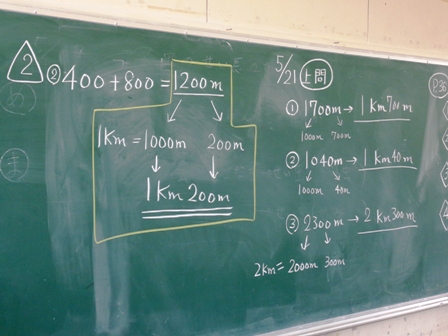 2
② 400+800=1200m
1Km=1000m 200m
1Km200m
5/21 上 問
① 1700m→1Km700m
1000m 700m
② 1040m→1Km40m
1000m 40m
③ 2300m→2Km300m
2Km=2000m 300m
P.36